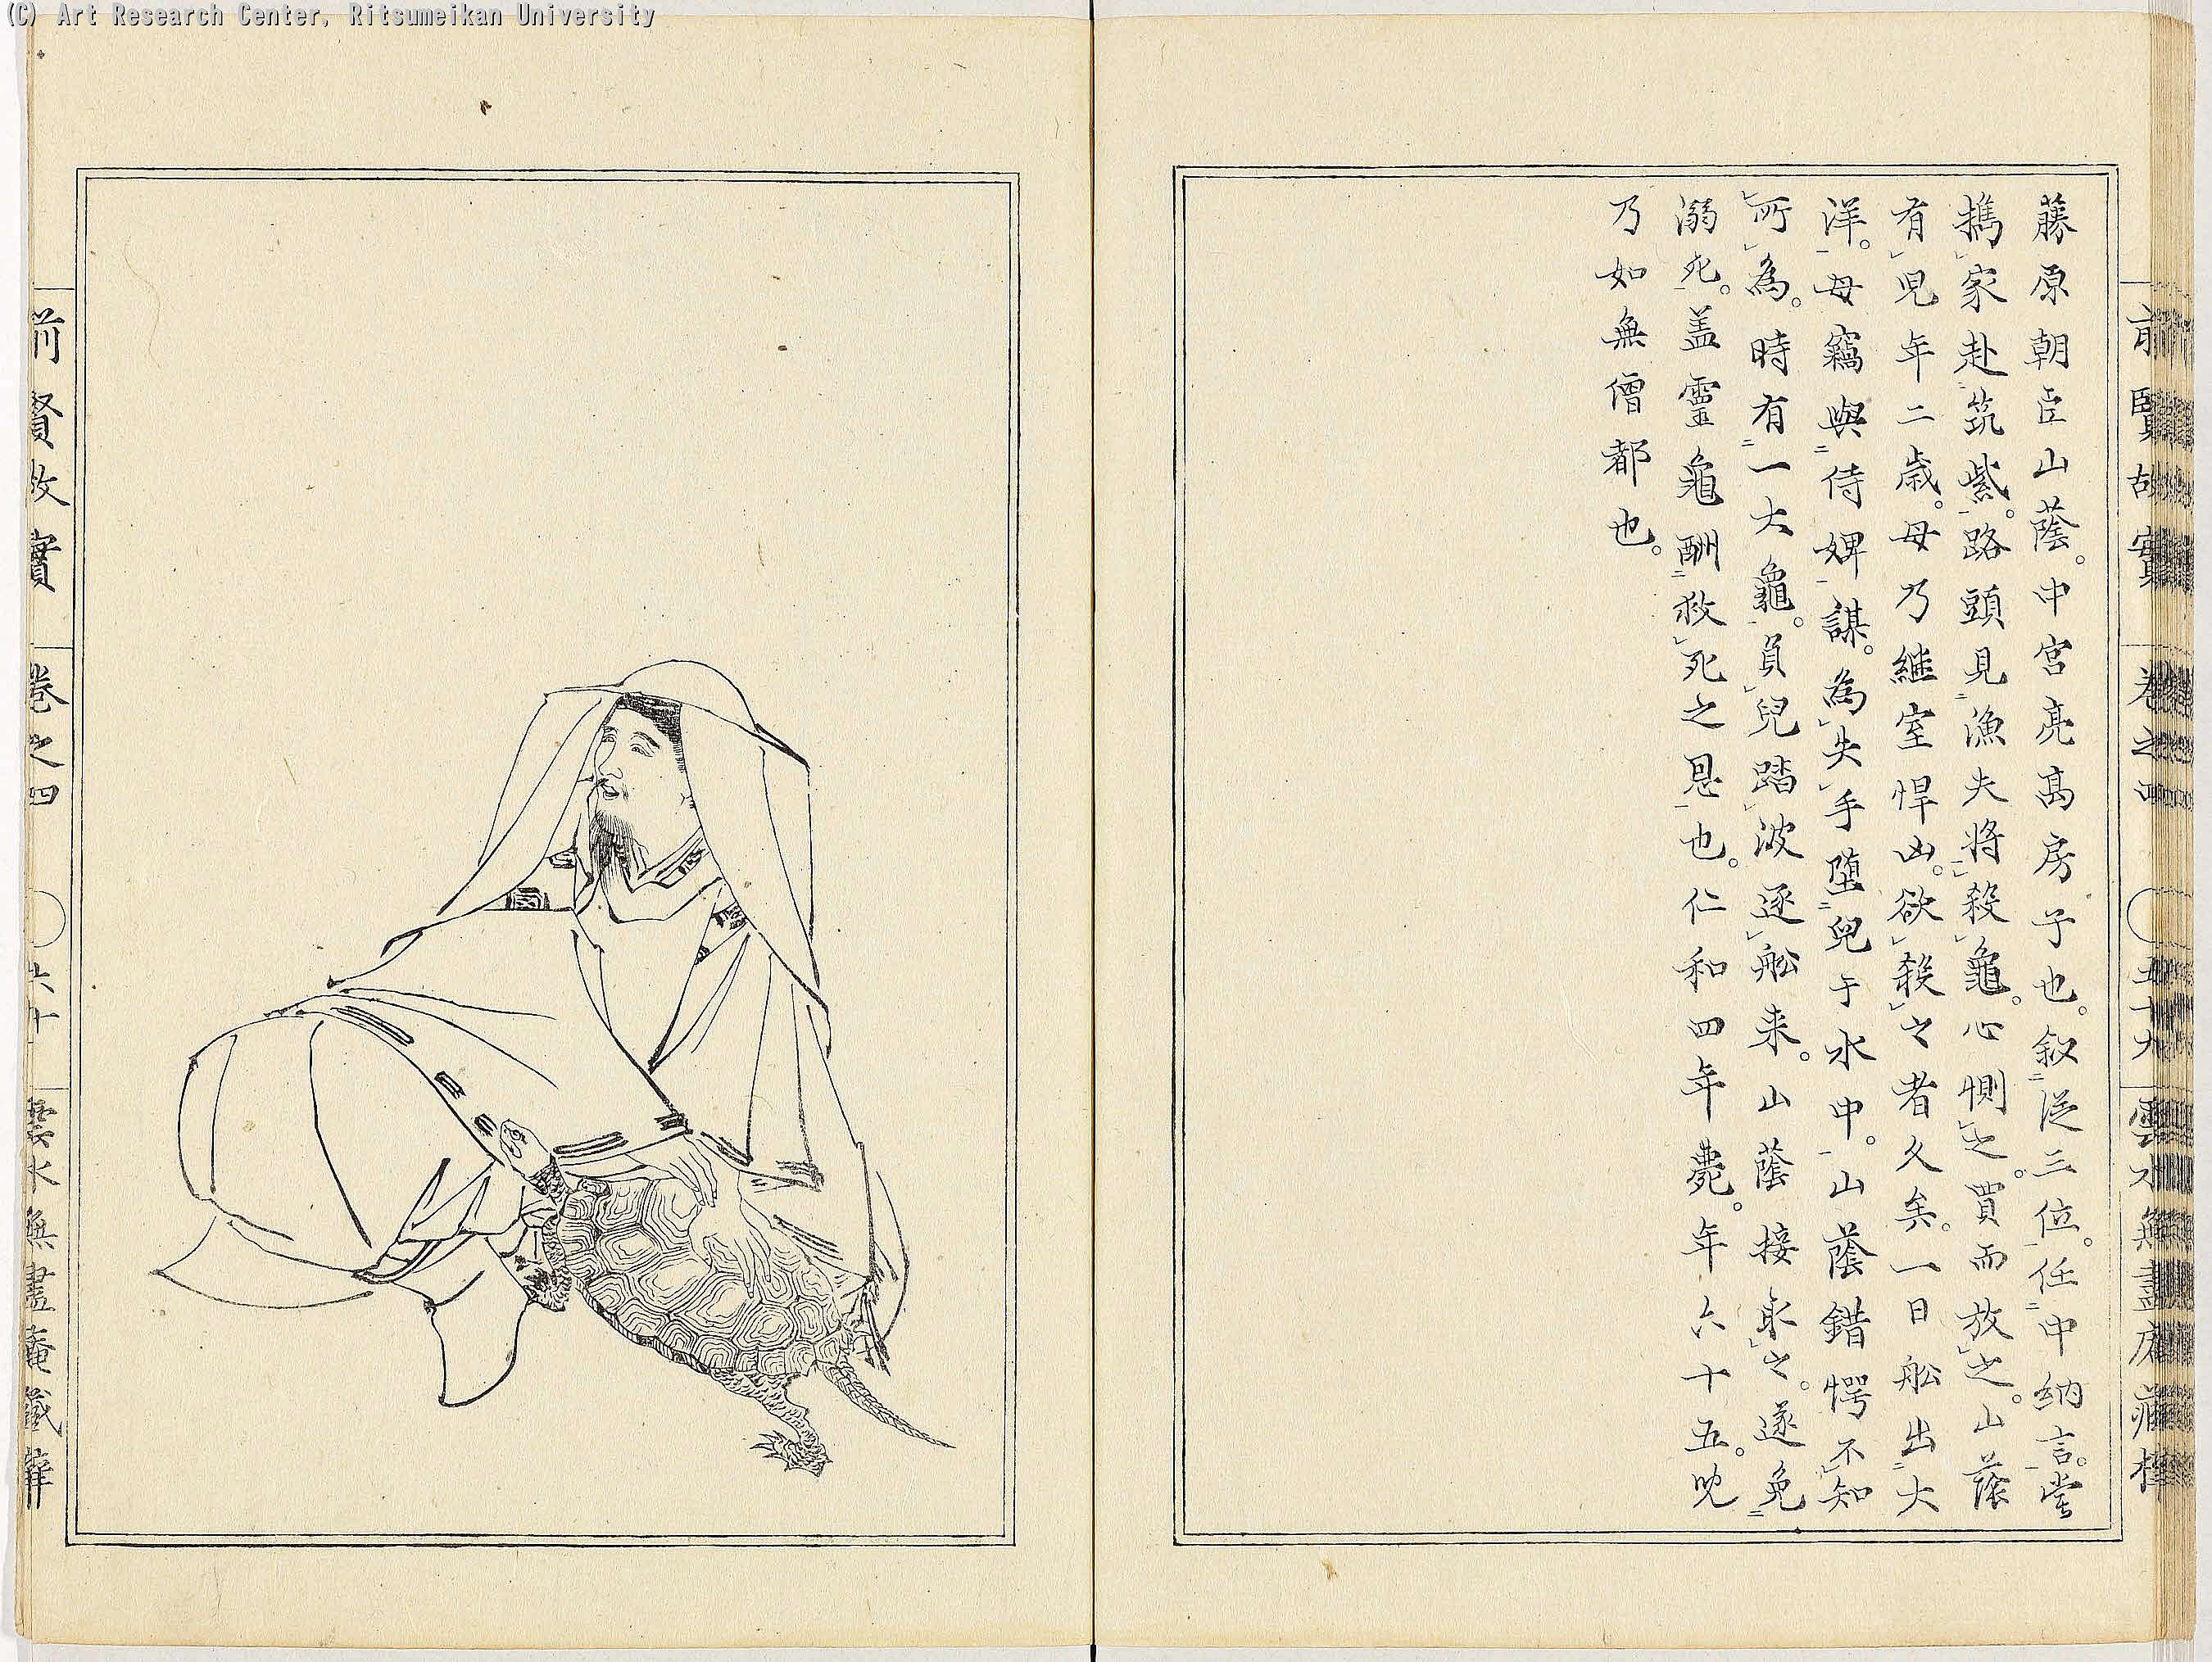 (C) Art Research Center, Ritsumeikan University
前賢故實 卷之四 五十九 雲水無盡庵藏梓
藤原朝臣山蔭。中宮亮高房子也。叙從三位。任中納言。嘗
攜家赴筑紫。路頭見漁夫將殺龜。心惻之。買而放之。山蔭
有児年二歳。母乃継室悍凶。欲殺之者久矣。一日舩出大
洋。母竊與侍婢謀。為失手墮兒于水中。山蔭錯愕不知
所為。時有一大龜。負兒踏波逐舩来。山蔭接取之。遂免
溺死。盖靈龜酬救死之恩也。仁和四年薨。年六十五。児
乃如無僧都也。
前賢故實 卷之四 六十 雲水無盡庵藏梓